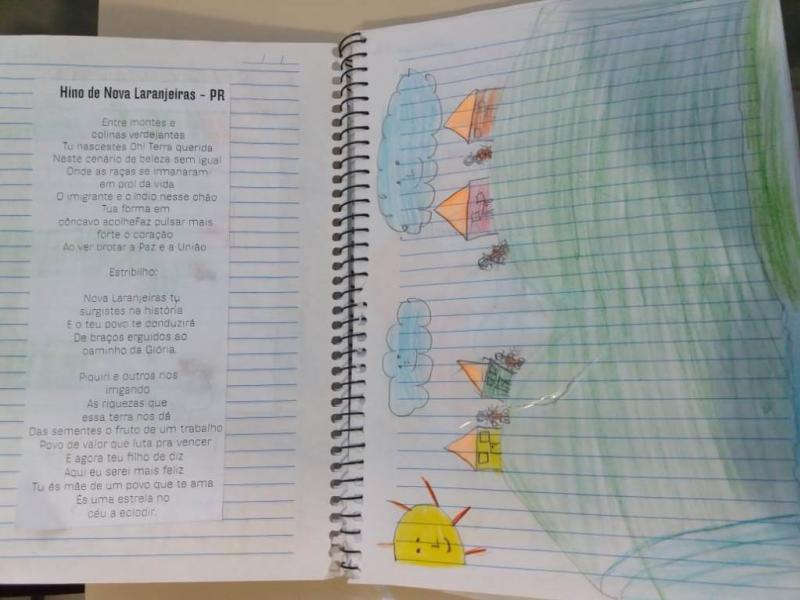 Hino de Nova Laranjeiras - PR
Entre montes e
colinas verdejantes
Tu nascestes Oh! Terra querida
Neste cenário de beleza sem igual
Onde as raças se irmanaram
em prol da vida
O imigrante e o índio nesse chão
Tua forma em
côncavo acolheFaz pulsar mais
forte o coração
Ao ver brotar a Paz e a União
Estribilho:
Nova Laranjeiras tu
surgistes na história
E o teu povo te conduzirá
De braços erguidos ao
caminho da Glória.
Piquiri e outros rios
irrigando
As riquezas que
essa terra nos dá
Das sementes o fruto de um trabalho
Povo de valor que luta pra vencer
E agora teu filho de diz
Aqui eu serei mais feliz
Tu és mãe de um povo que te ama
És uma estrela no
céu a eclodir.